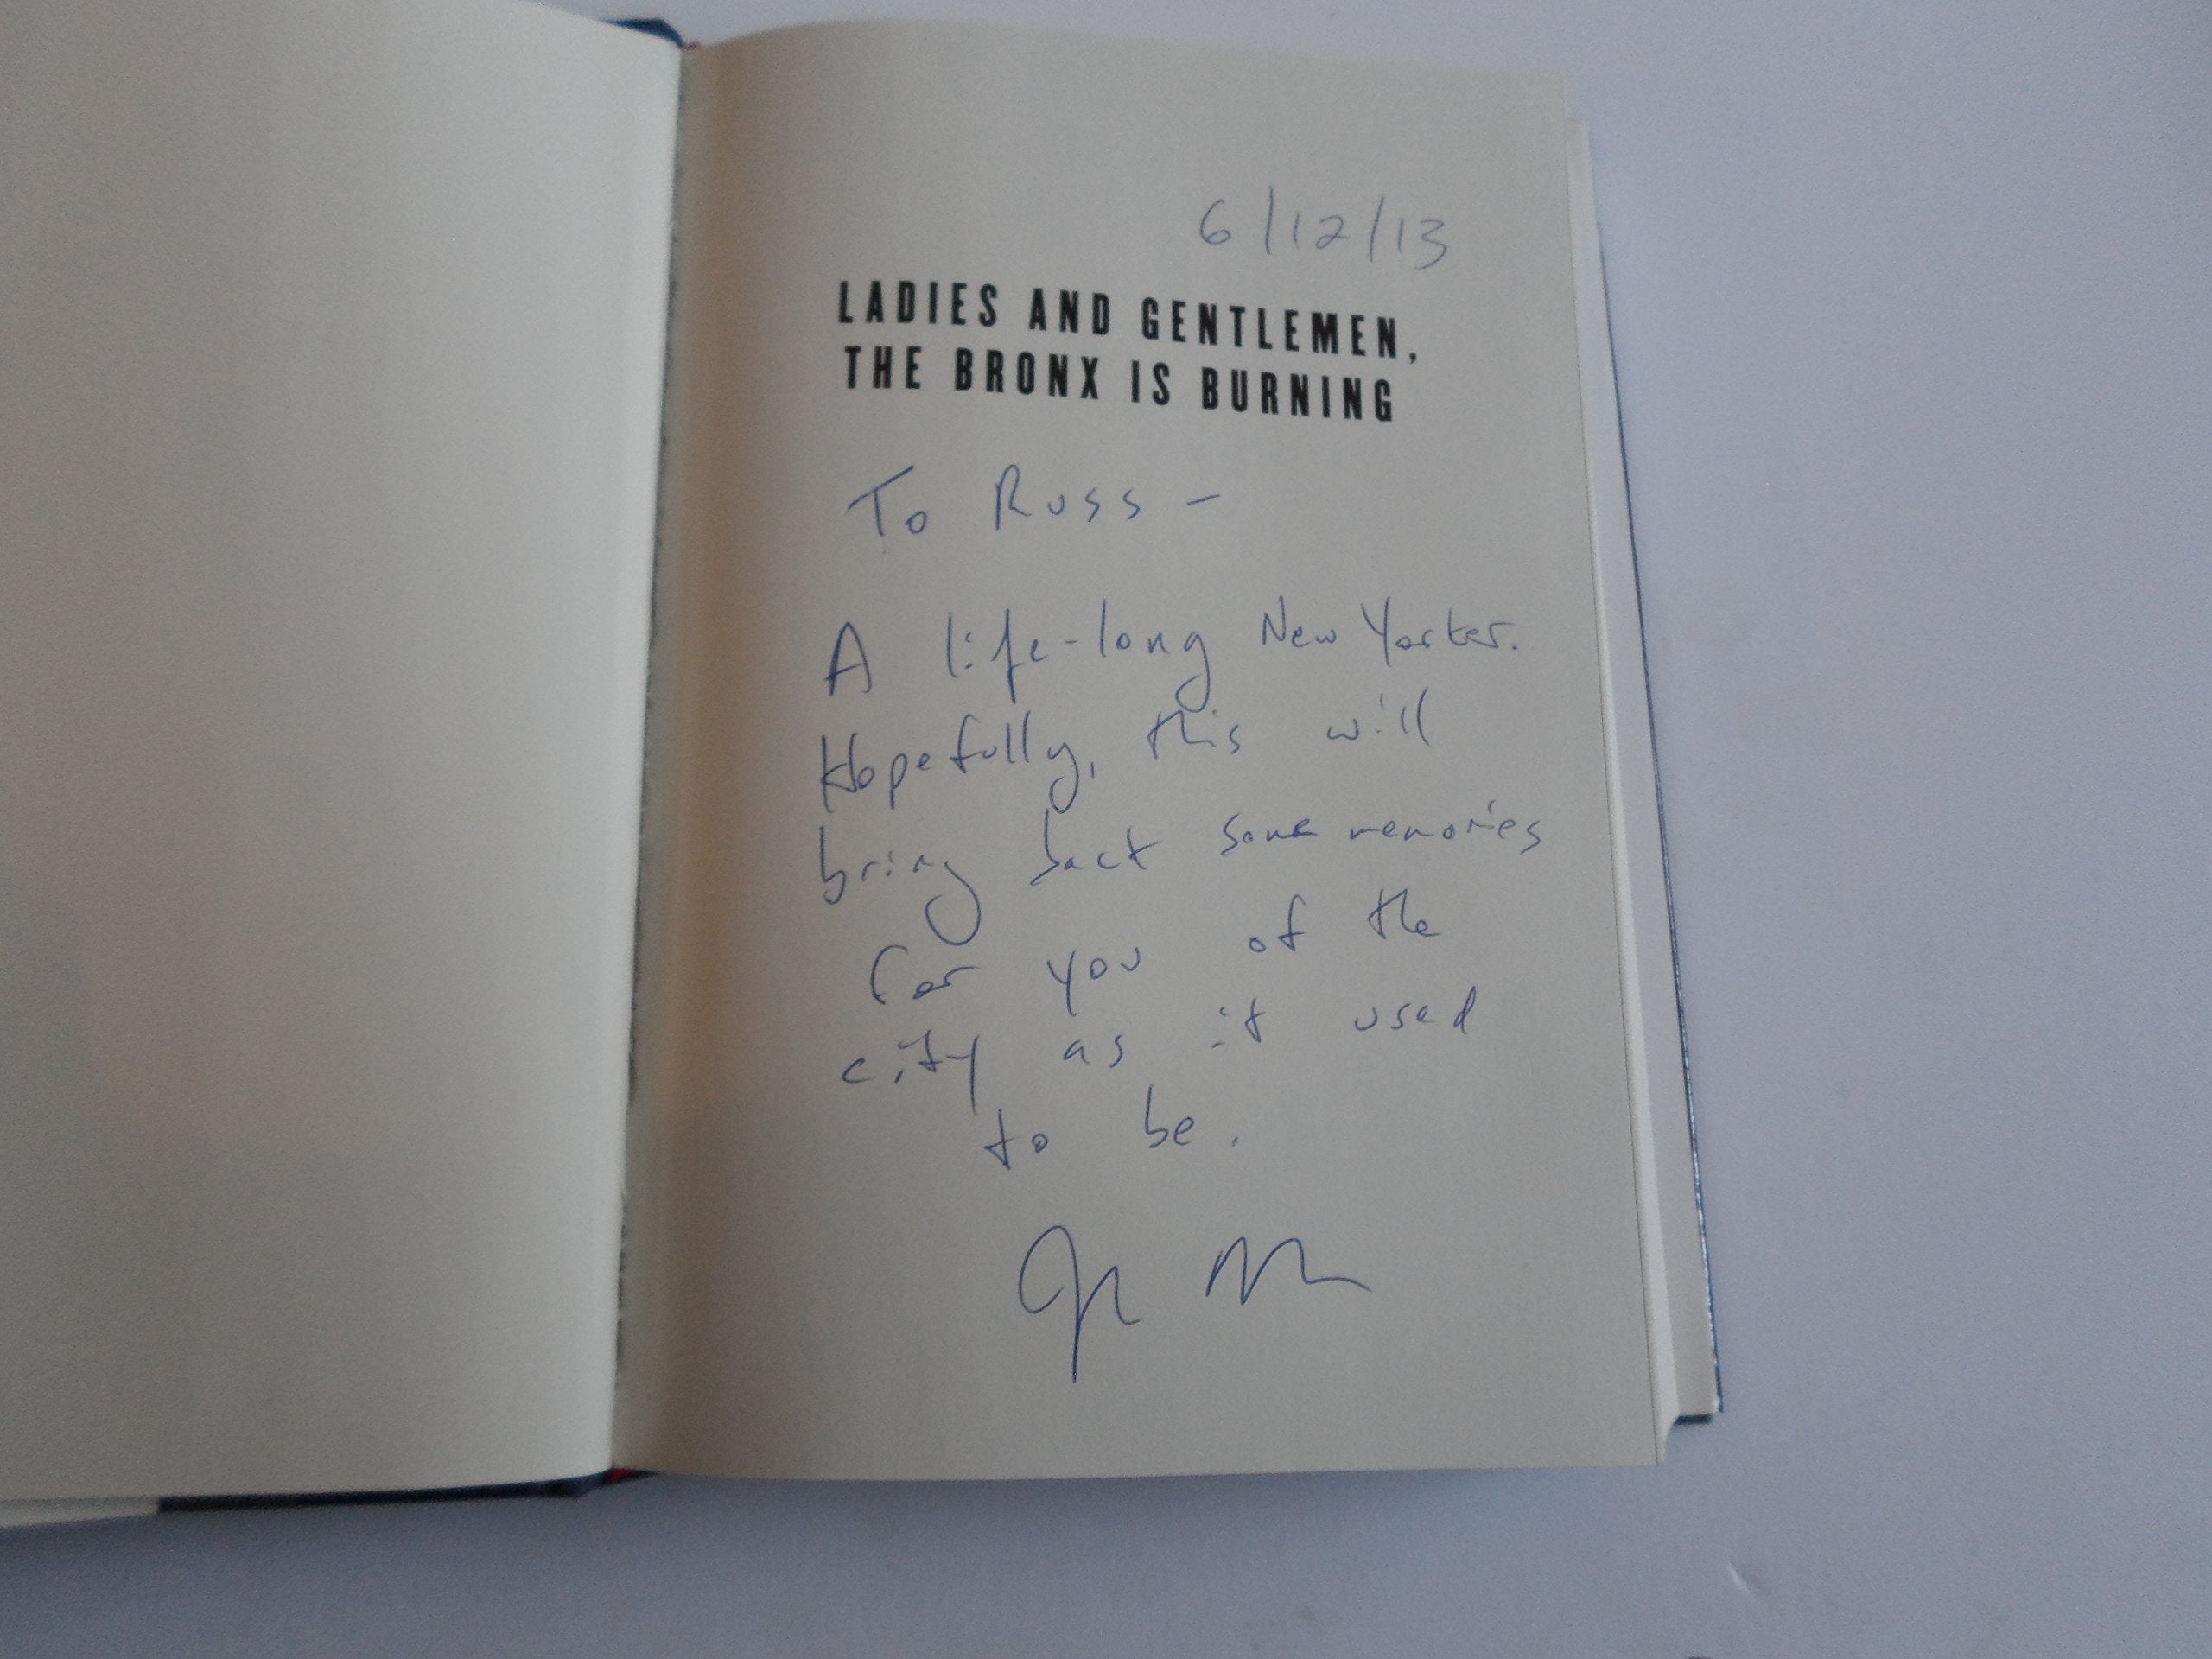 6/12/13
LADIES AND GENTLEMEN,
THE BRONX IS BURNING
To Russ -
A life-long New Yorker.
Hopefully, this will
bring back some memories
for you of the
city as it used
to be.